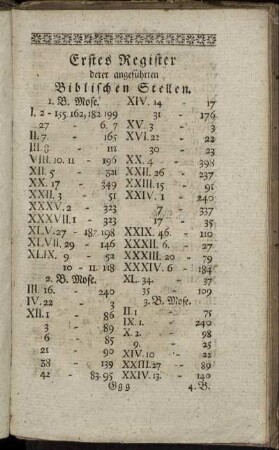 Erstes Register
derer angeführten
Biblischen Stellen.
1. B. Mose.
I. 2 - 155. 162, 182 199
27 - 6. 7
II. 7. - 165
III. 8 - 111
VIII. 10. 11 - 196
XII. 5 - 321
XX. 17 - 349
XXII. 3 - 51
XXXV. 2 - 323
XXXVII. 1 - 323
XLV. 27 - 187. 198
XLVII. 29 - 146
XLIX. 9 - 52
10 - 11. 118
2. B. Mose.
III. 16. - 240
IV. 22 - 3
XII. 1 - 86
3 - 89
6 - 85
21 - 90
38 - 139
42 - 83. 95
XIV. 14 - 17
31 - 176
XV. 3 - 3
XVI. 22 - 22
30 - 23
XX. 4 - 398
XXII. 26 - 237
XXIII. 15 - 91
XXIV. 1 - 240
7 - 337
17 - 35
XXIX. 46. - 110
XXXII. 6. - 27
XXXIII. 20 - 79
XXXIV. 6 - 184
XL. 34 - 37
35 - 109
3. B. Mose.
II. 1 - 75
IX. 1. - 240
X. 2. - 98
9. - 25
XIV. 10 - 22
XXIII. 27 - 89
XXIV. 13. - 140
Ggg
4. B.